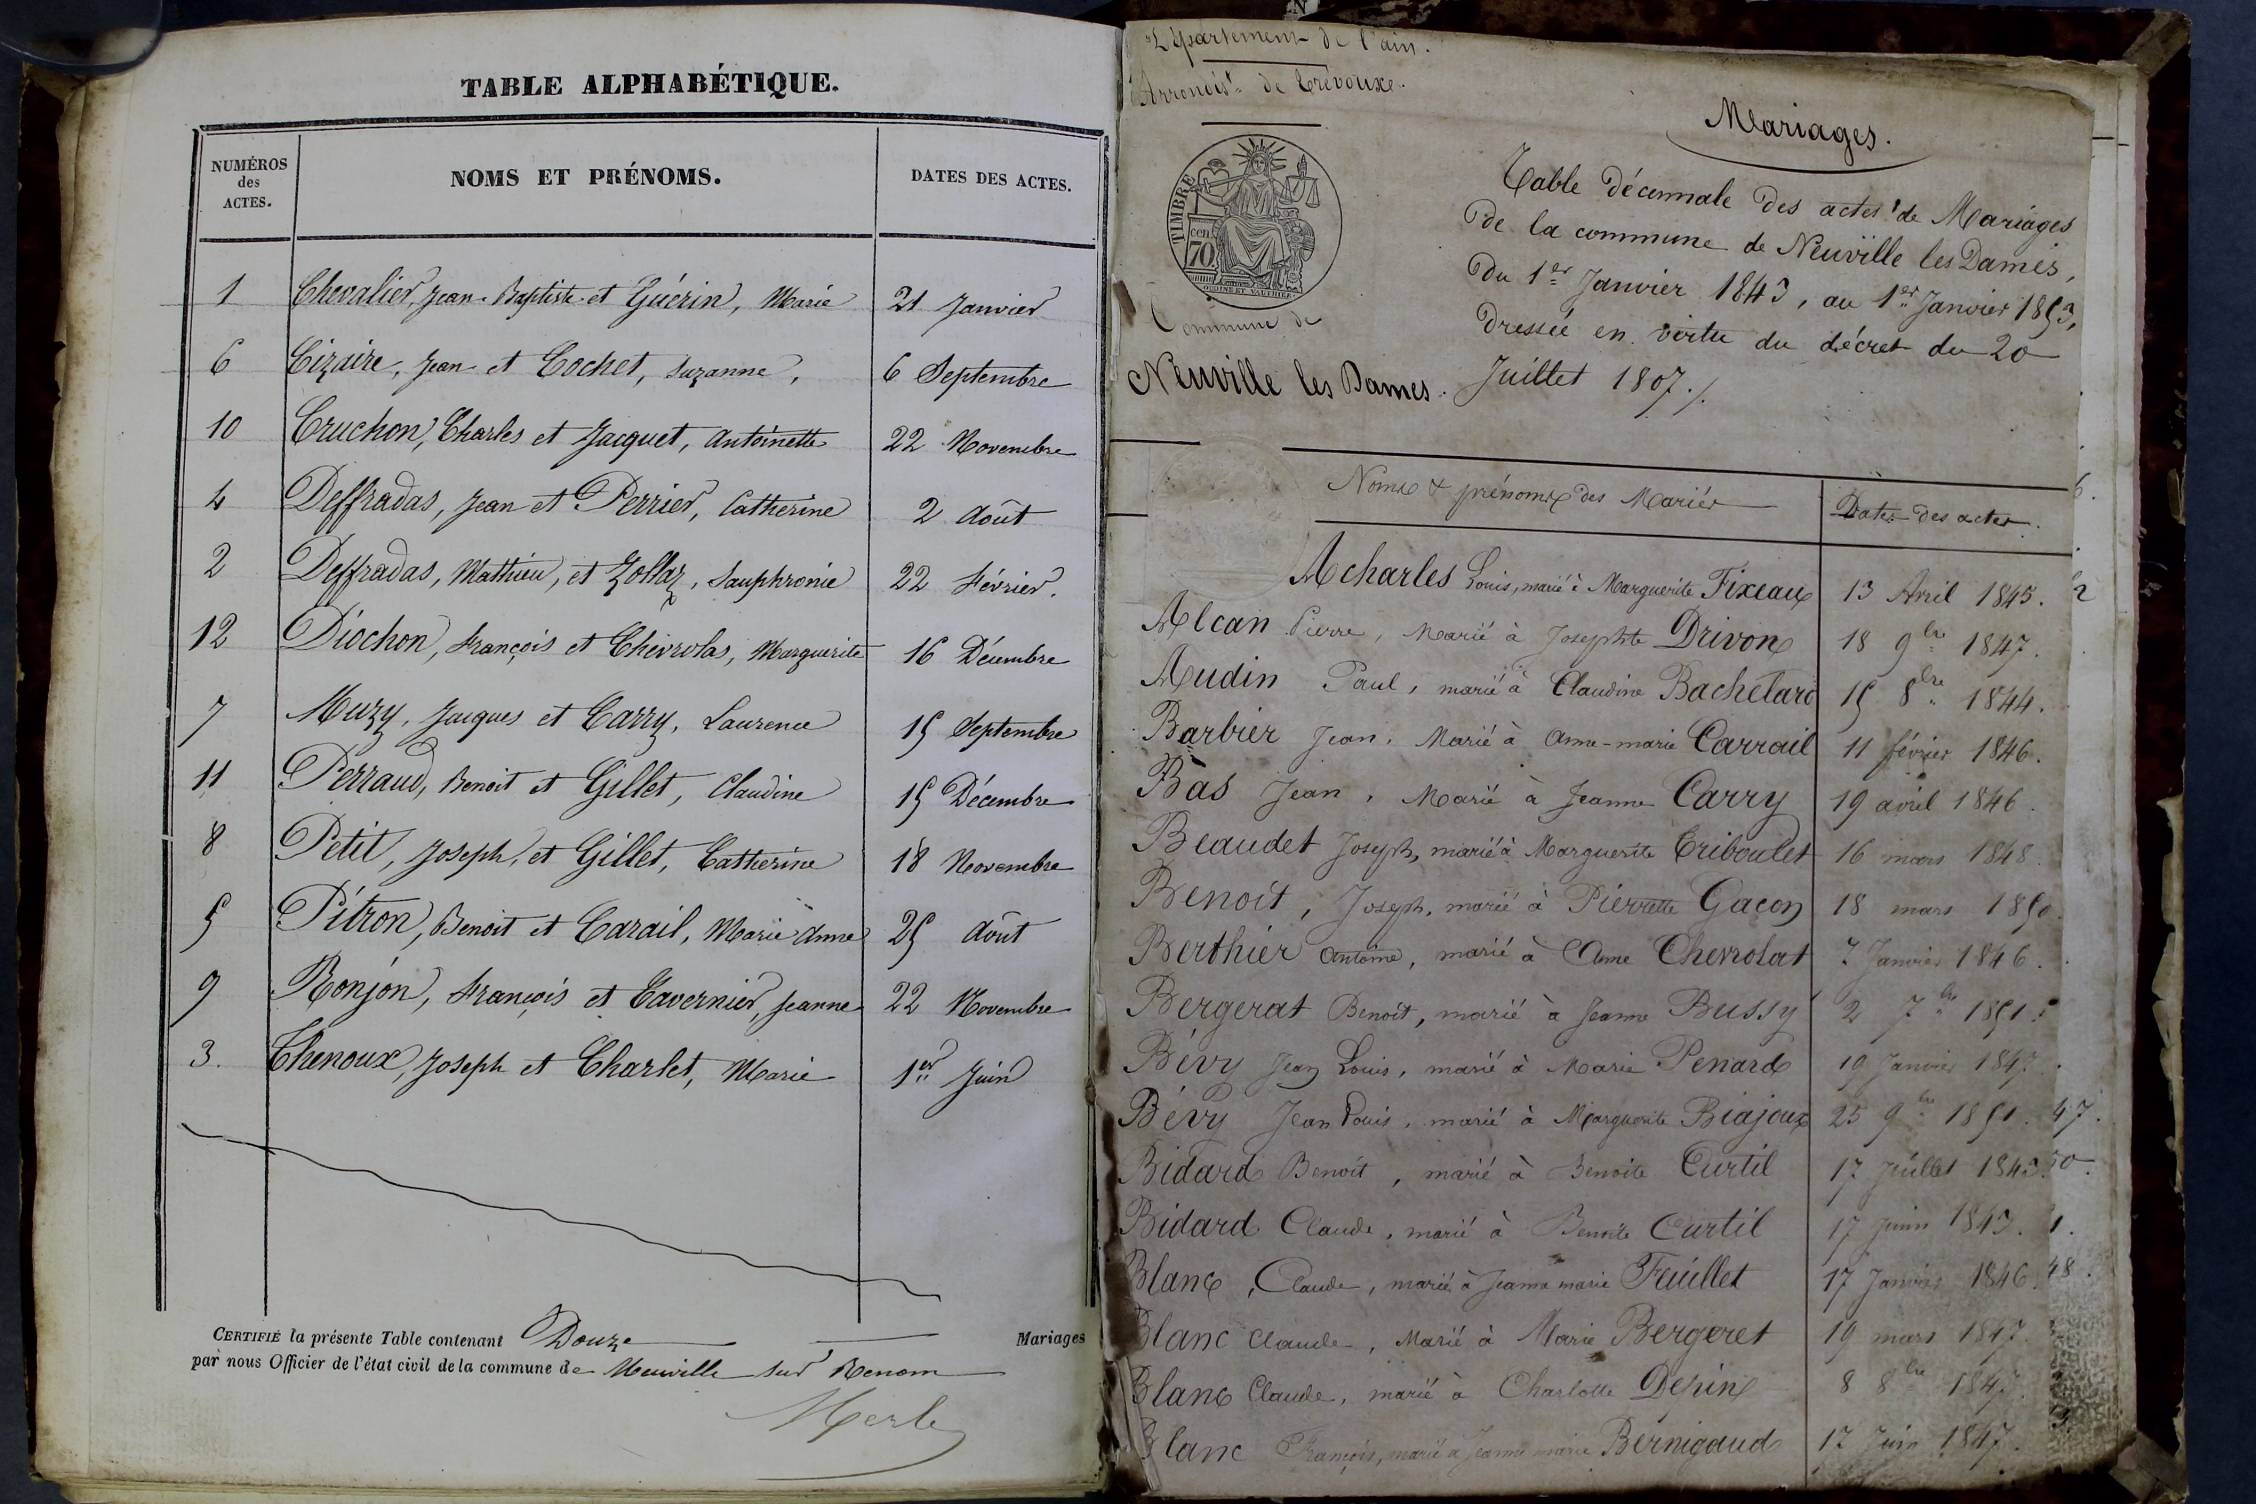 TABLE ALPHABÉTIQUE.
NUMÉROS des ACTES. NOMS ET PRÉNOMS. DATES DES ACTES.
1 Chevalier, Jean-Baptiste et Guérin, Marie 21 Janvier
6 Cizaire, Jean et Cochet, Suzanne, 6 Septembre
10 Cruchon, Charles et Jacquet, Antoinette 22 Novembre
4 Deffradas, Jean et Perrier, Catherine 2 Août
2 Deffradas, Mathieu, et Zollaz, Sauphronie 22 Février.
12 Diochon, François et Chevrolas, Marguerite 16 Décembre
7 Muzy, Jacques et Carry, Laurence 15 Septembre
11 Perraud, Benoit et Gillet, Claudine 15 Décembre
8 Petit, Joseph, et Gillet, Catherine 18 Novembre
5 Pitron, Benoit et Carail, Marie Anne 25 Août
9 Ronjon, François et Tavernier, Jeanne 22 Novembre
3. Thenoux, Joseph et Charlet, Marie 1er Juin
CERTIFIÉ la présente Table contenant Douze Mariages
par nous Officier de l'état civil de la commune de Neuville sur Renom
Merle
Département de l'ain.
Arrondist de Trévoux.
TIMBRE
70 cen.
Commune de
Neuville les Dames.
Mariages.
Table décennale des actes de Mariages
de la commune de Neuville les Dames,
du 1er Janvier 1843, au 1er Janvier 1853,
dressée en vertu du décret du 20
Juillet 1807./.
Noms & prénoms des Mariés Dates des actes.
Acharles Louis, marié à Marguerite Fixeau 13 Avril 1845.
Alcan Pierre, Marié à Josephte Drivon 18 9bre 1847.
Audin Paul, marié à Claudine Bachelard 15 8bre 1844.
Barbier Jean, Marié à Anne-marie Carrail 11 février 1846.
Bas Jean, Marié à Jeanne Carry 19 avril 1846.
Beaudet Joseph, marié à Marguerite Triboulet 16 mars 1848.
Benoit, Joseph, marié à Pierrette Gaçon 18 mars 1850.
Berthier Antoine, marié à Anne Chevrolat 7 Janvier 1846.
Bergerat Benoit, marié à Jeanne Bussy 2 7bre 1851.
Bévy Jean Louis, marié à Marie Penard 19 Janvier 1847.
Bévy Jean Louis, marié à Marguerite Biajoux 25 9bre 1851.
Bidard Benoit, marié à Benoite Curtil 17 Juillet 1843.
Bidard Claude, marié à Benoite Curtil 17 Juin 1843.
Blanc, Claude, marié à Jeanne marie Feuillet 17 Janvier 1846.
Blanc Claude, Marié à Marie Bergeret 19 mars 1847.
Blanc Claude, marié à Charlotte Depin 8 8bre 1847.
Blanc François, marié à Jeanne marie Bernigaud 17 Juin 1847.